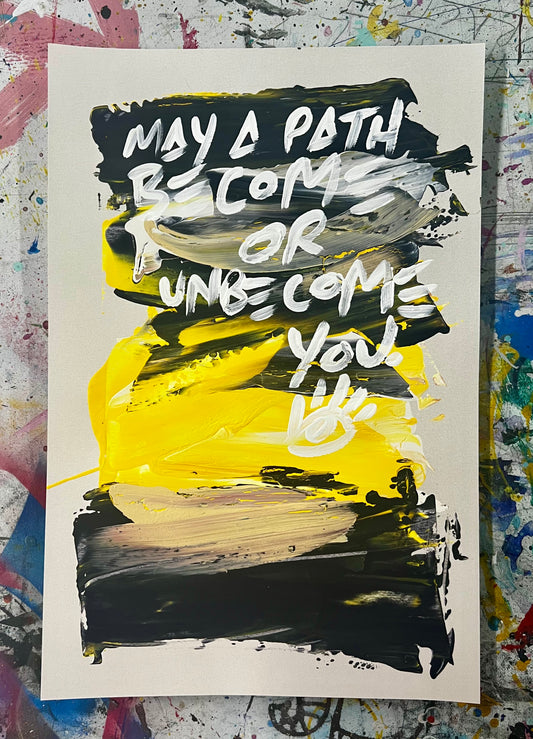 MAY A PATH
BECOME
OR
UNBECOME
YOU.